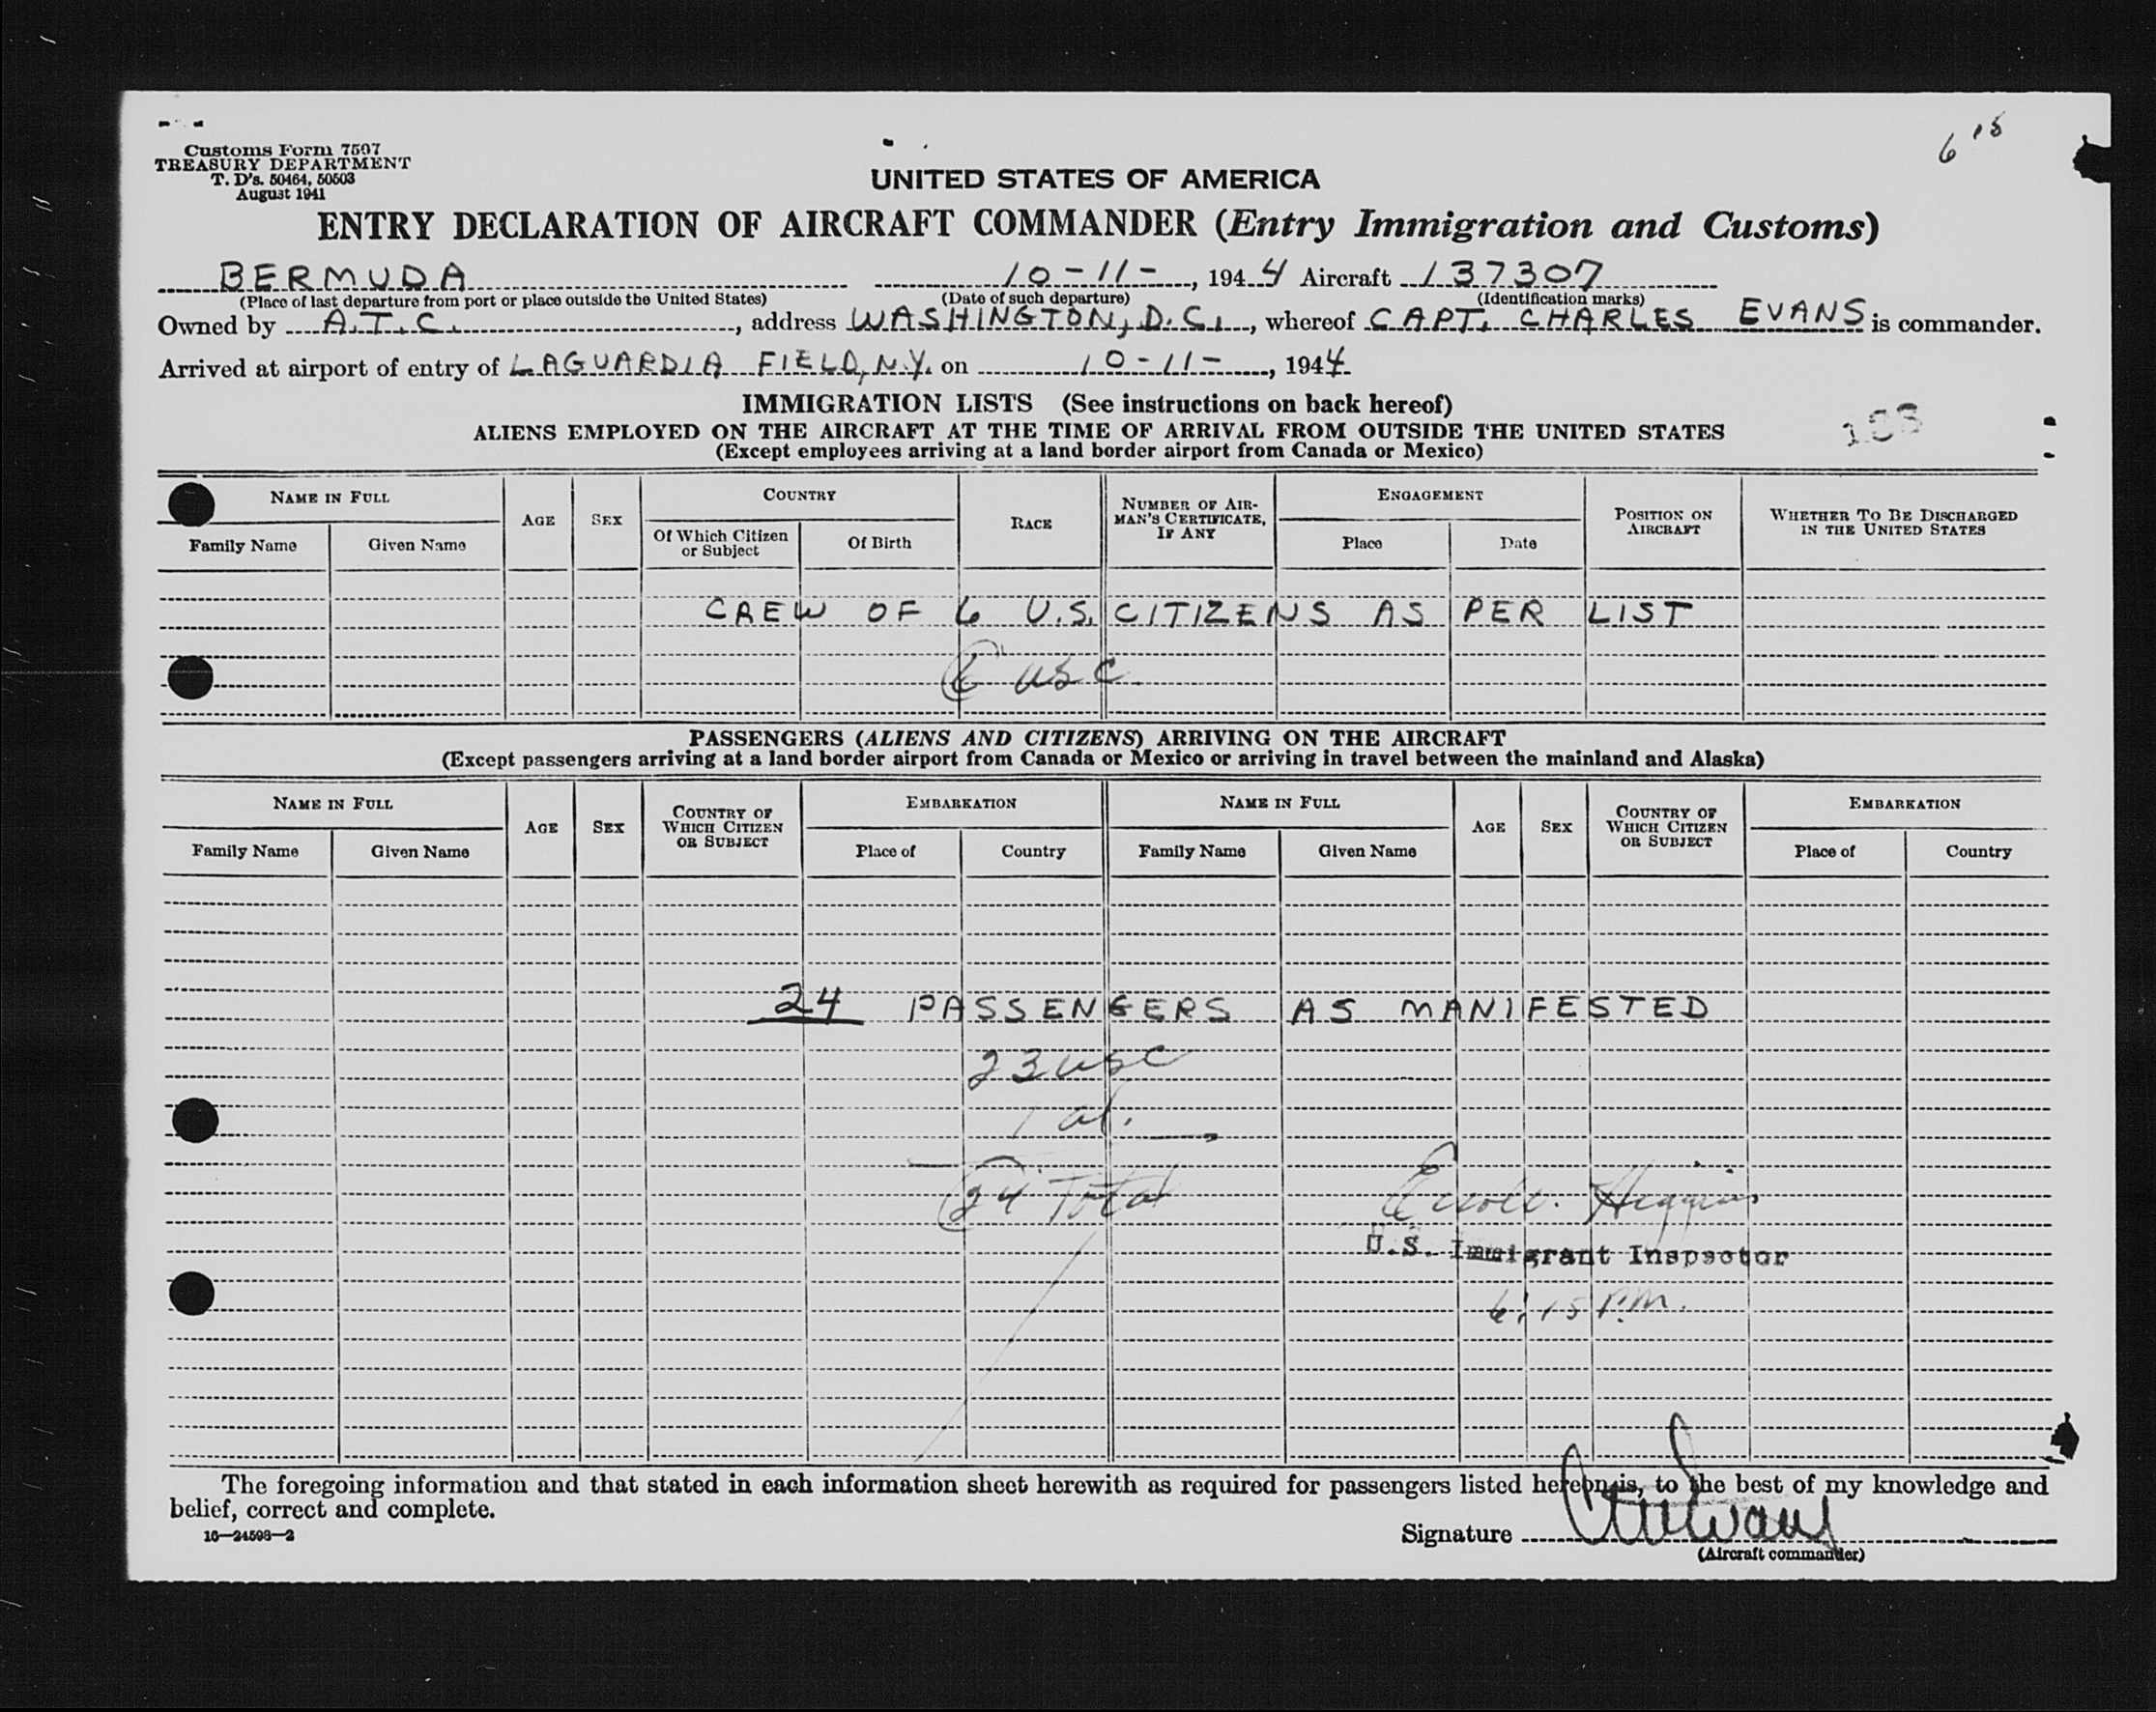 6 15
Customs Form 7507
TREASURY DEPARTMENT
T. D's. 50464, 50503
August 1941
UNITED STATES OF AMERICA
ENTRY DECLARATION OF AIRCRAFT COMMANDER (Entry Immigration and Customs)
BERMUDA 10-11-, 1944 Aircraft 137307
(Place of last departure from port or place outside the United States) (Date of such departure) (Identification marks)
Owned by A.T.C., address WASHINGTON, D.C., whereof CAPT. CHARLES EVANS is commander.
Arrived at airport of entry of LAGUARDIA FIELD, N.Y. on 10-11-, 1944
IMMIGRATION LISTS (See instructions on back hereof)
ALIENS EMPLOYED ON THE AIRCRAFT AT THE TIME OF ARRIVAL FROM OUTSIDE THE UNITED STATES
(Except employees arriving at a land border airport from Canada or Mexico)
NAME IN FULL AGE SEX COUNTRY RACE NUMBER OF AIRMAN'S CERTIFICATE, IF ANY ENGAGEMENT POSITION ON AIRCRAFT WHETHER TO BE DISCHARGED IN THE UNITED STATES
Family Name Given Name Of Which Citizen or Subject Of Birth Place Date
CREW OF 6 U.S. CITIZENS AS PER LIST
6 USC
PASSENGERS (ALIENS AND CITIZENS) ARRIVING ON THE AIRCRAFT
(Except passengers arriving at a land border airport from Canada or Mexico or arriving in travel between the mainland and Alaska)
NAME IN FULL AGE SEX COUNTRY OF WHICH CITIZEN OR SUBJECT EMBARKATION NAME IN FULL AGE SEX COUNTRY OF WHICH CITIZEN OR SUBJECT EMBARKATION
Family Name Given Name Place of Country Family Name Given Name Place of Country
24 PASSENGERS AS MANIFESTED
23 USC
1 al.
24 Total
Higgins
U.S. Immigrant Inspector
6:15 P.M.
The foregoing information and that stated in each information sheet herewith as required for passengers listed hereon is, to the best of my knowledge and
belief, correct and complete.
16—24598—2
Signature
(Aircraft commander)